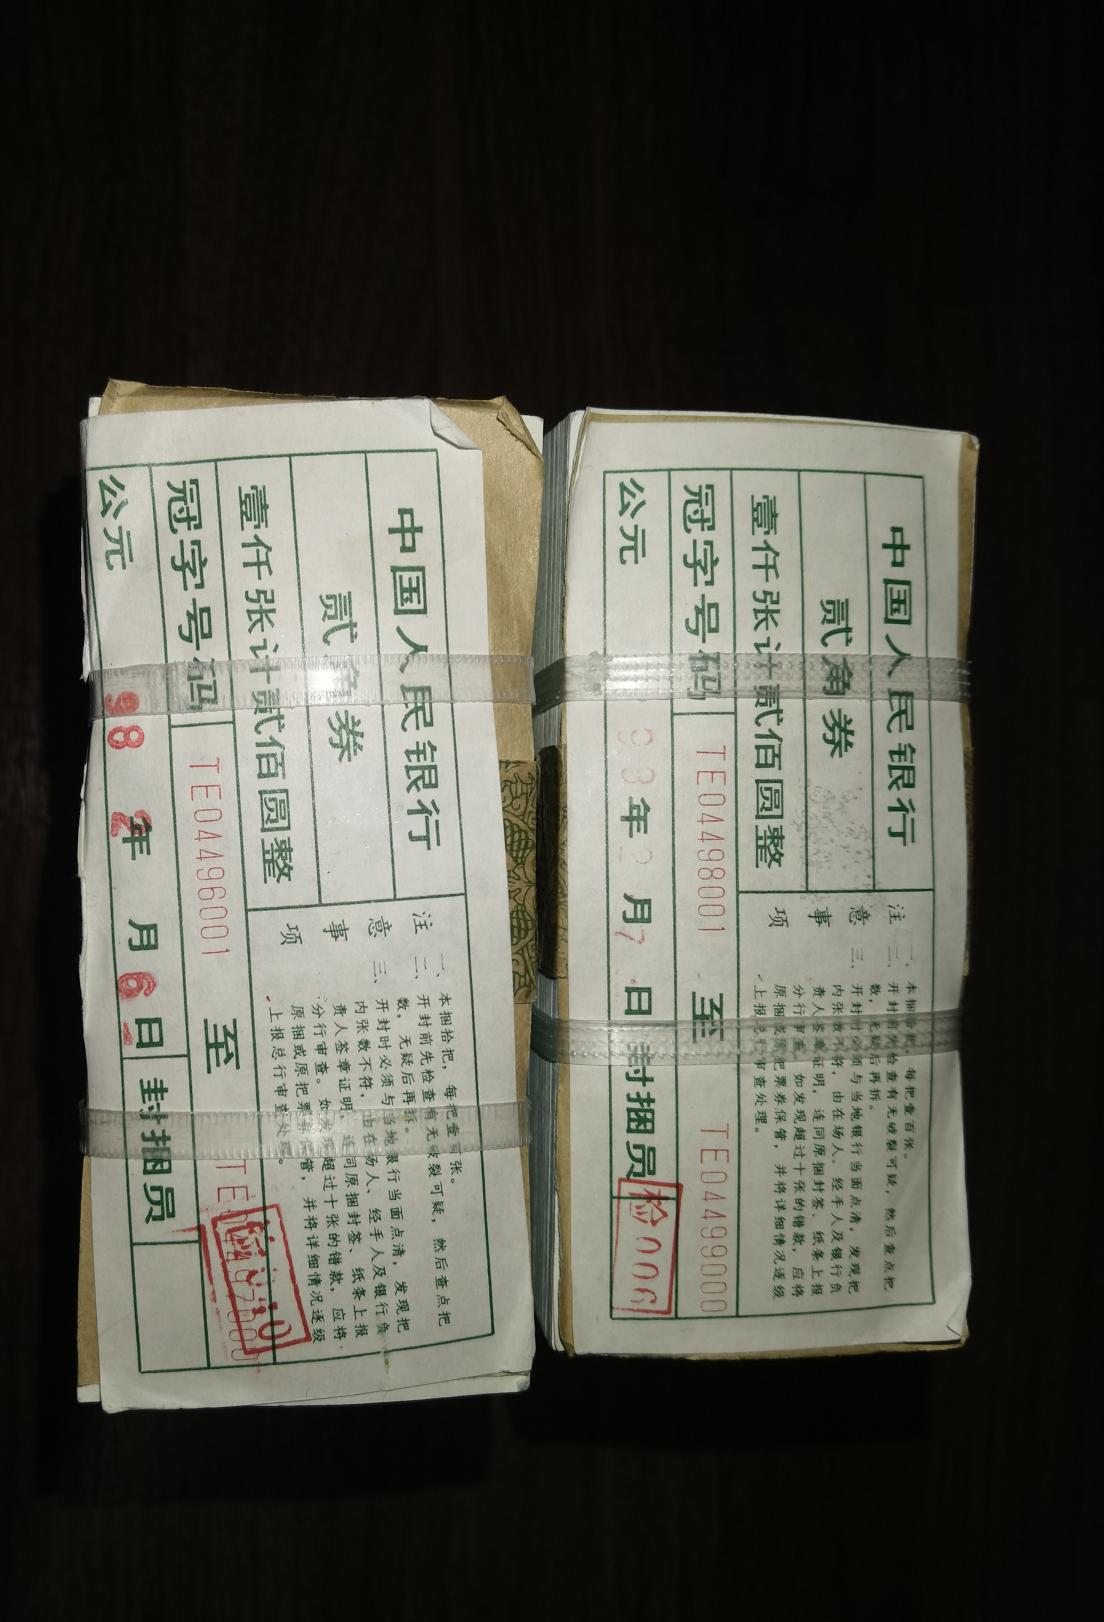 中国人民银行
贰角券
壹仟张计贰佰圆整
冠字号码 TE04496001 至
公元 98年2月6日 封捆员
注意事项
一、本捆拾把，每把壹百张。
二、开封前先检查有无破裂可疑，然后查点把
数，无疑后再拆。
三、开封时必须与当地银行当面点清，发现把
内张数不符，由在场人、经手人及银行负
责人签章证明，连同原捆封签、纸条上报
分行审查。如发现超过十张的错款，应将
原捆或原把票券保管，并将详细情况逐级
上报总行审查处理。
中国人民银行
贰角券
壹仟张计贰佰圆整
冠字号码 TE04498001 至 TE04499000
公元 98年2月7日 封捆员 检006
注意事项
一、本捆拾把，每把壹百张。
二、开封前先检查有无破裂可疑，然后查点把
数，无疑后再拆。
三、开封时必须与当地银行当面点清，发现把
内张数不符，由在场人、经手人及银行负
责人签章证明，连同原捆封签、纸条上报
分行审查。如发现超过十张的错款，应将
原捆或原把票券保管，并将详细情况逐级
上报总行审查处理。